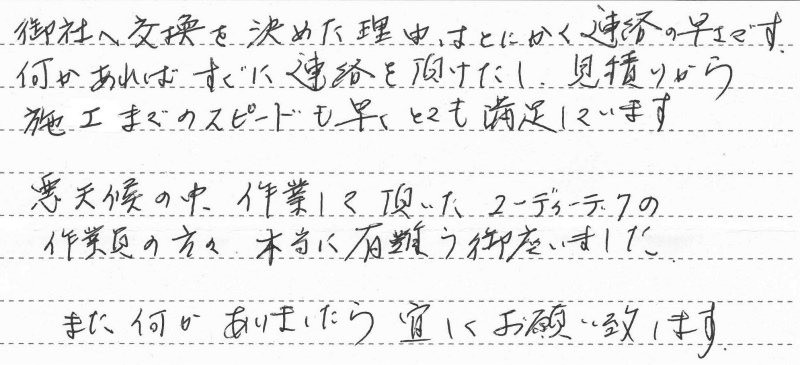 御社へ交換を決めた理由はとにかく連絡の早さです。
何かあればすぐに連絡を頂けたし、見積りから
施工までのスピードも早くとても満足しています
悪天候の中、作業して頂いた ユーディーテックの
作業員の方々 本当に有難う御座いました。
また何かありましたら宜しくお願い致します。